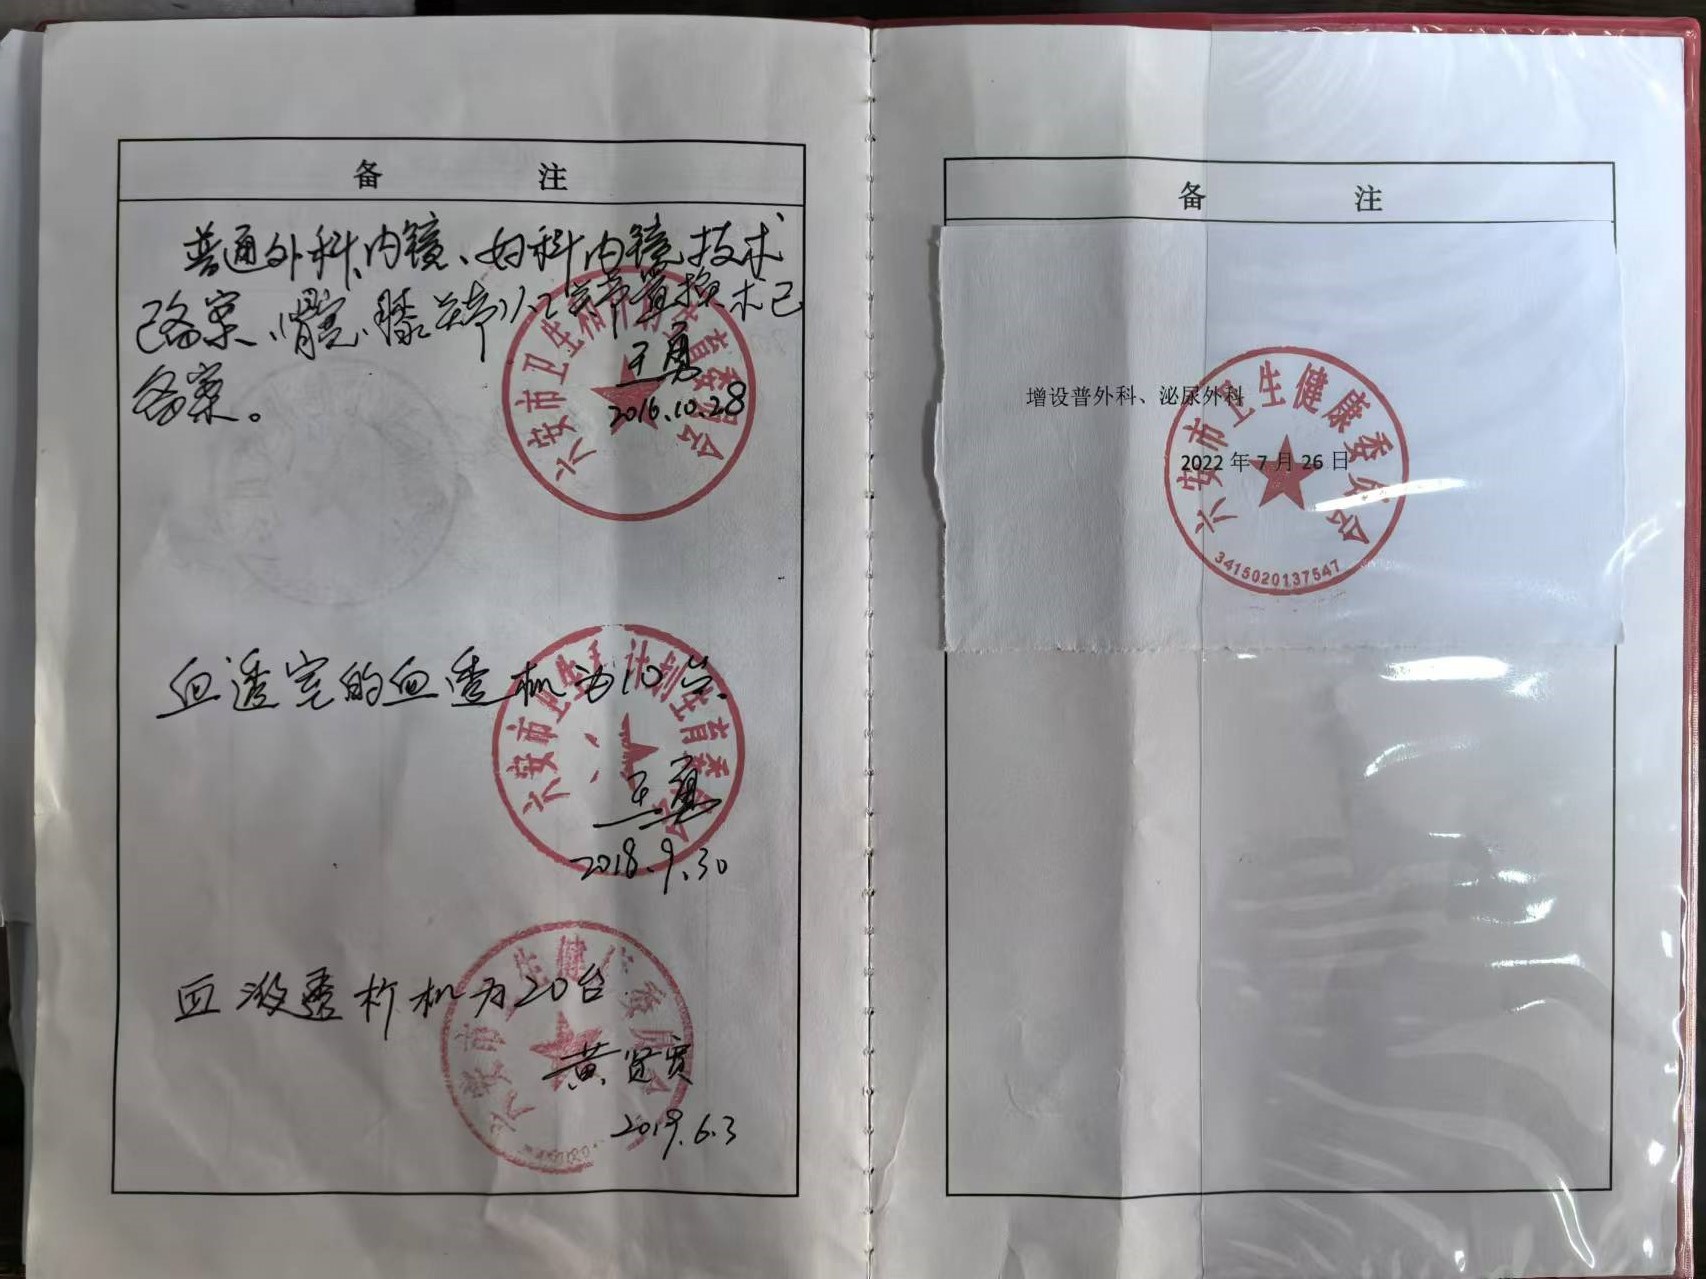 备 注
普通外科内镜、妇科内镜技术
已备案、髋、膝关节人工关节置换术已
备案。
六安市卫生和计划生育委员会
王勇
2016.10.28
血透室的血透机为10台.
六安市卫生和计划生育委员会
王勇
2018.9.30
血液透析机为20台
六安市卫生健康委员会
黄贤
2019.6.3
备 注
增设普外科、泌尿外科
2022 年 7 月 26 日
六安市卫生健康委员会
3415020137547